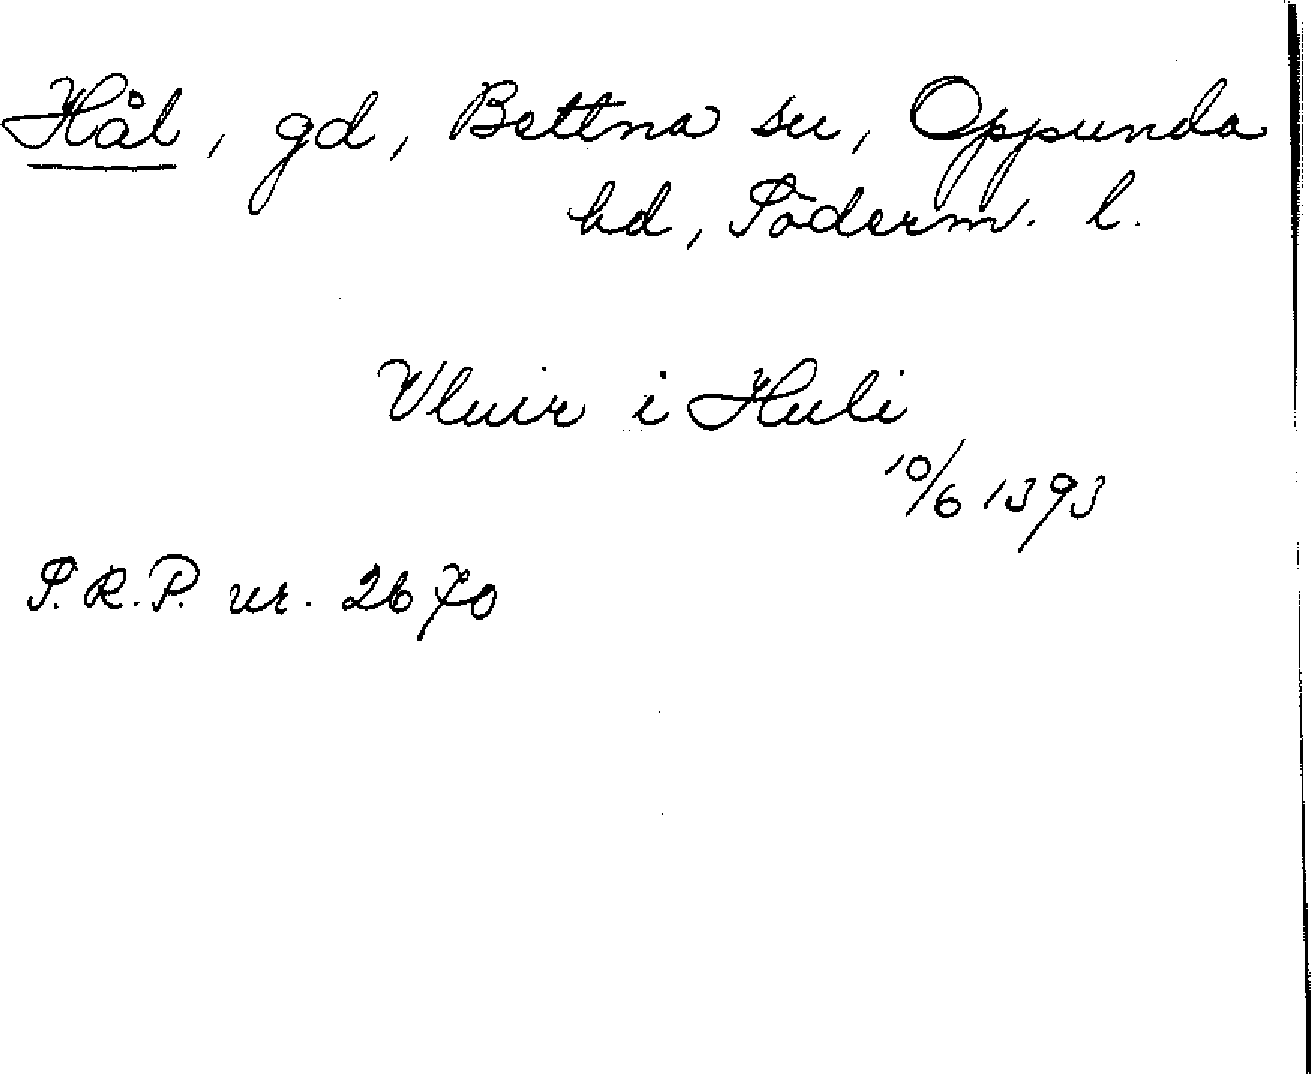 Hål, gd, Bettna sn, Oppunda
hd, Söderm. l.
Vluir i Huli
10/6 1393
S.R.P. nr. 2670